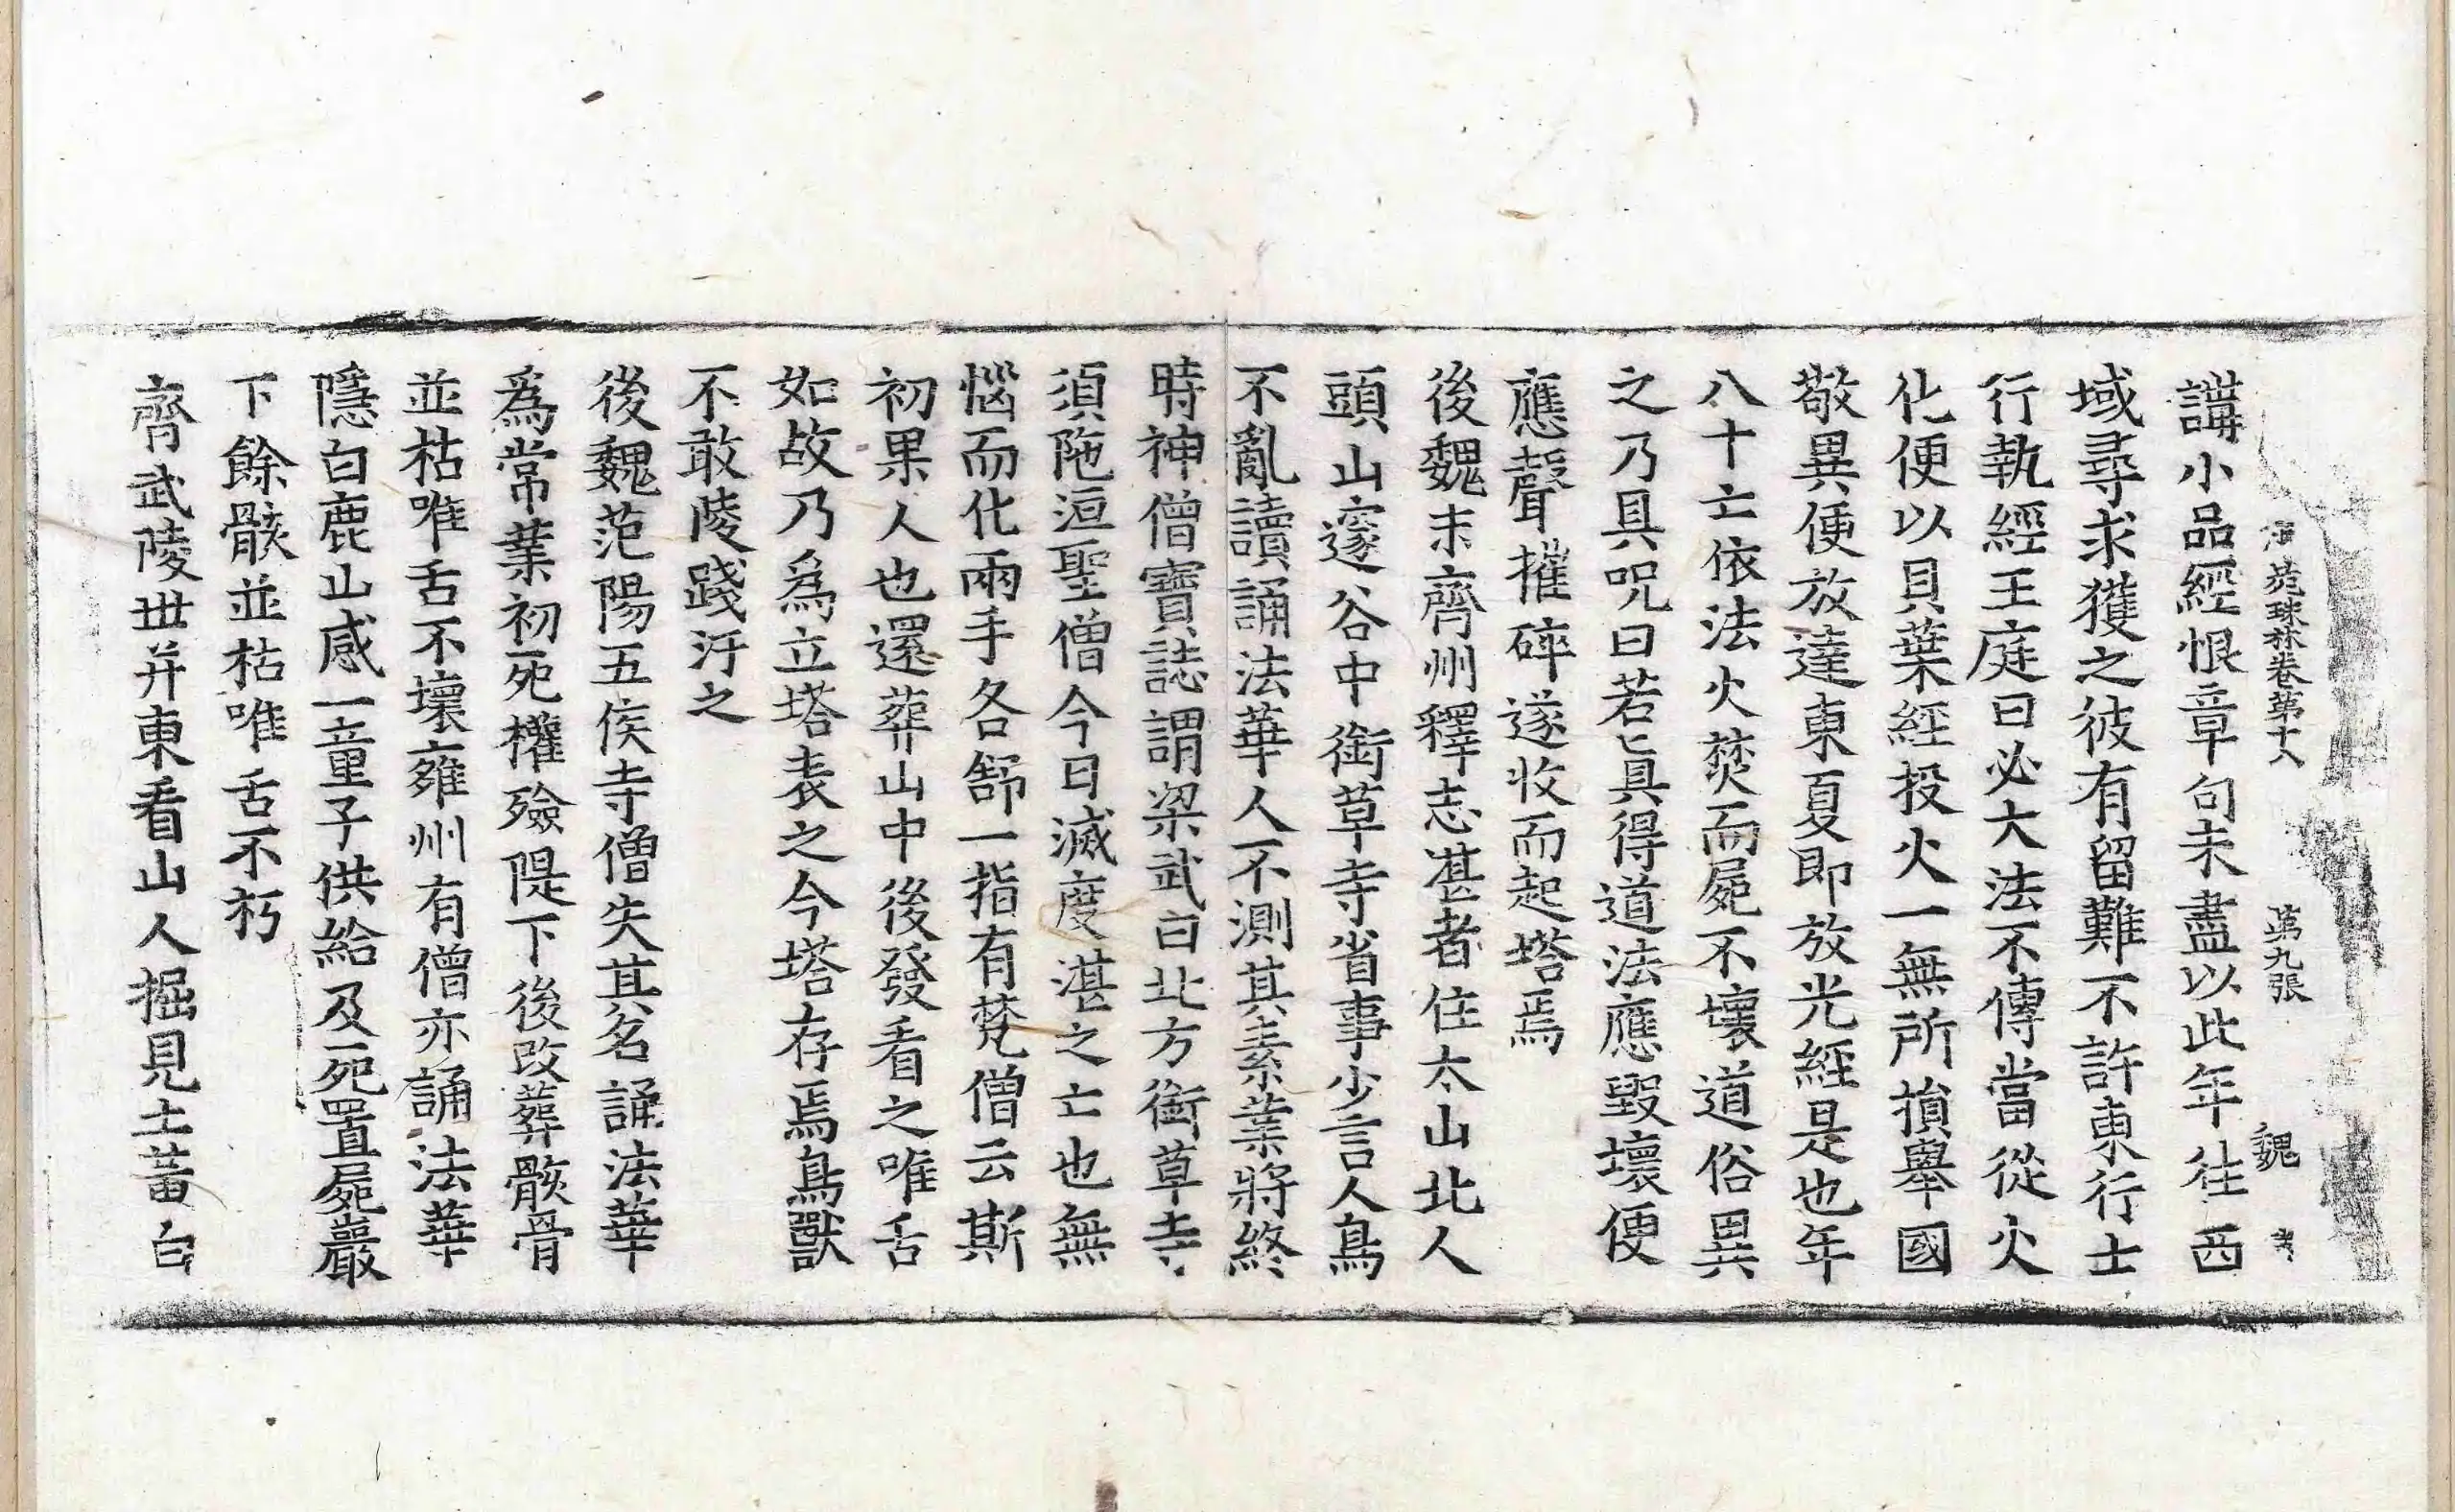 法苑珠林卷第十八 第九張 魏
講小品經恨章句未盡以此年往西
域尋求獲之彼有留難不許東行士
行執經王庭曰必大法不傳當從火
化便以貝葉經投火一無所損舉國
敬異便放達東夏即放光經是也年
八十亡依法火焚而屍不壞道俗異
之乃具呪曰若眞得道法應毀壞便
應聲摧碎遂收而起塔焉
後魏末齊州釋志湛者住太山北人
頭山邃谷中銜草寺省事少言人鳥
不亂讀誦法華人不測其素業將終
時神僧寶誌謂梁武曰北方銜草寺
須陁洹聖僧今日滅度湛之亡也無
惱而化兩手各舒一指有梵僧云斯
初果人也還葬山中後發看之唯舌
如故乃爲立塔表之今塔存焉鳥獸
不敢陵踐汙之
後魏范陽五侯寺僧失其名誦法華
爲常業初死權殮隄下後改葬骸骨
並枯唯舌不壞雍州有僧亦誦法華
隱白鹿山感一童子供給及死置屍巖
下餘骸並枯唯舌不朽
齊武陵世并東看山人掘見土蓄白